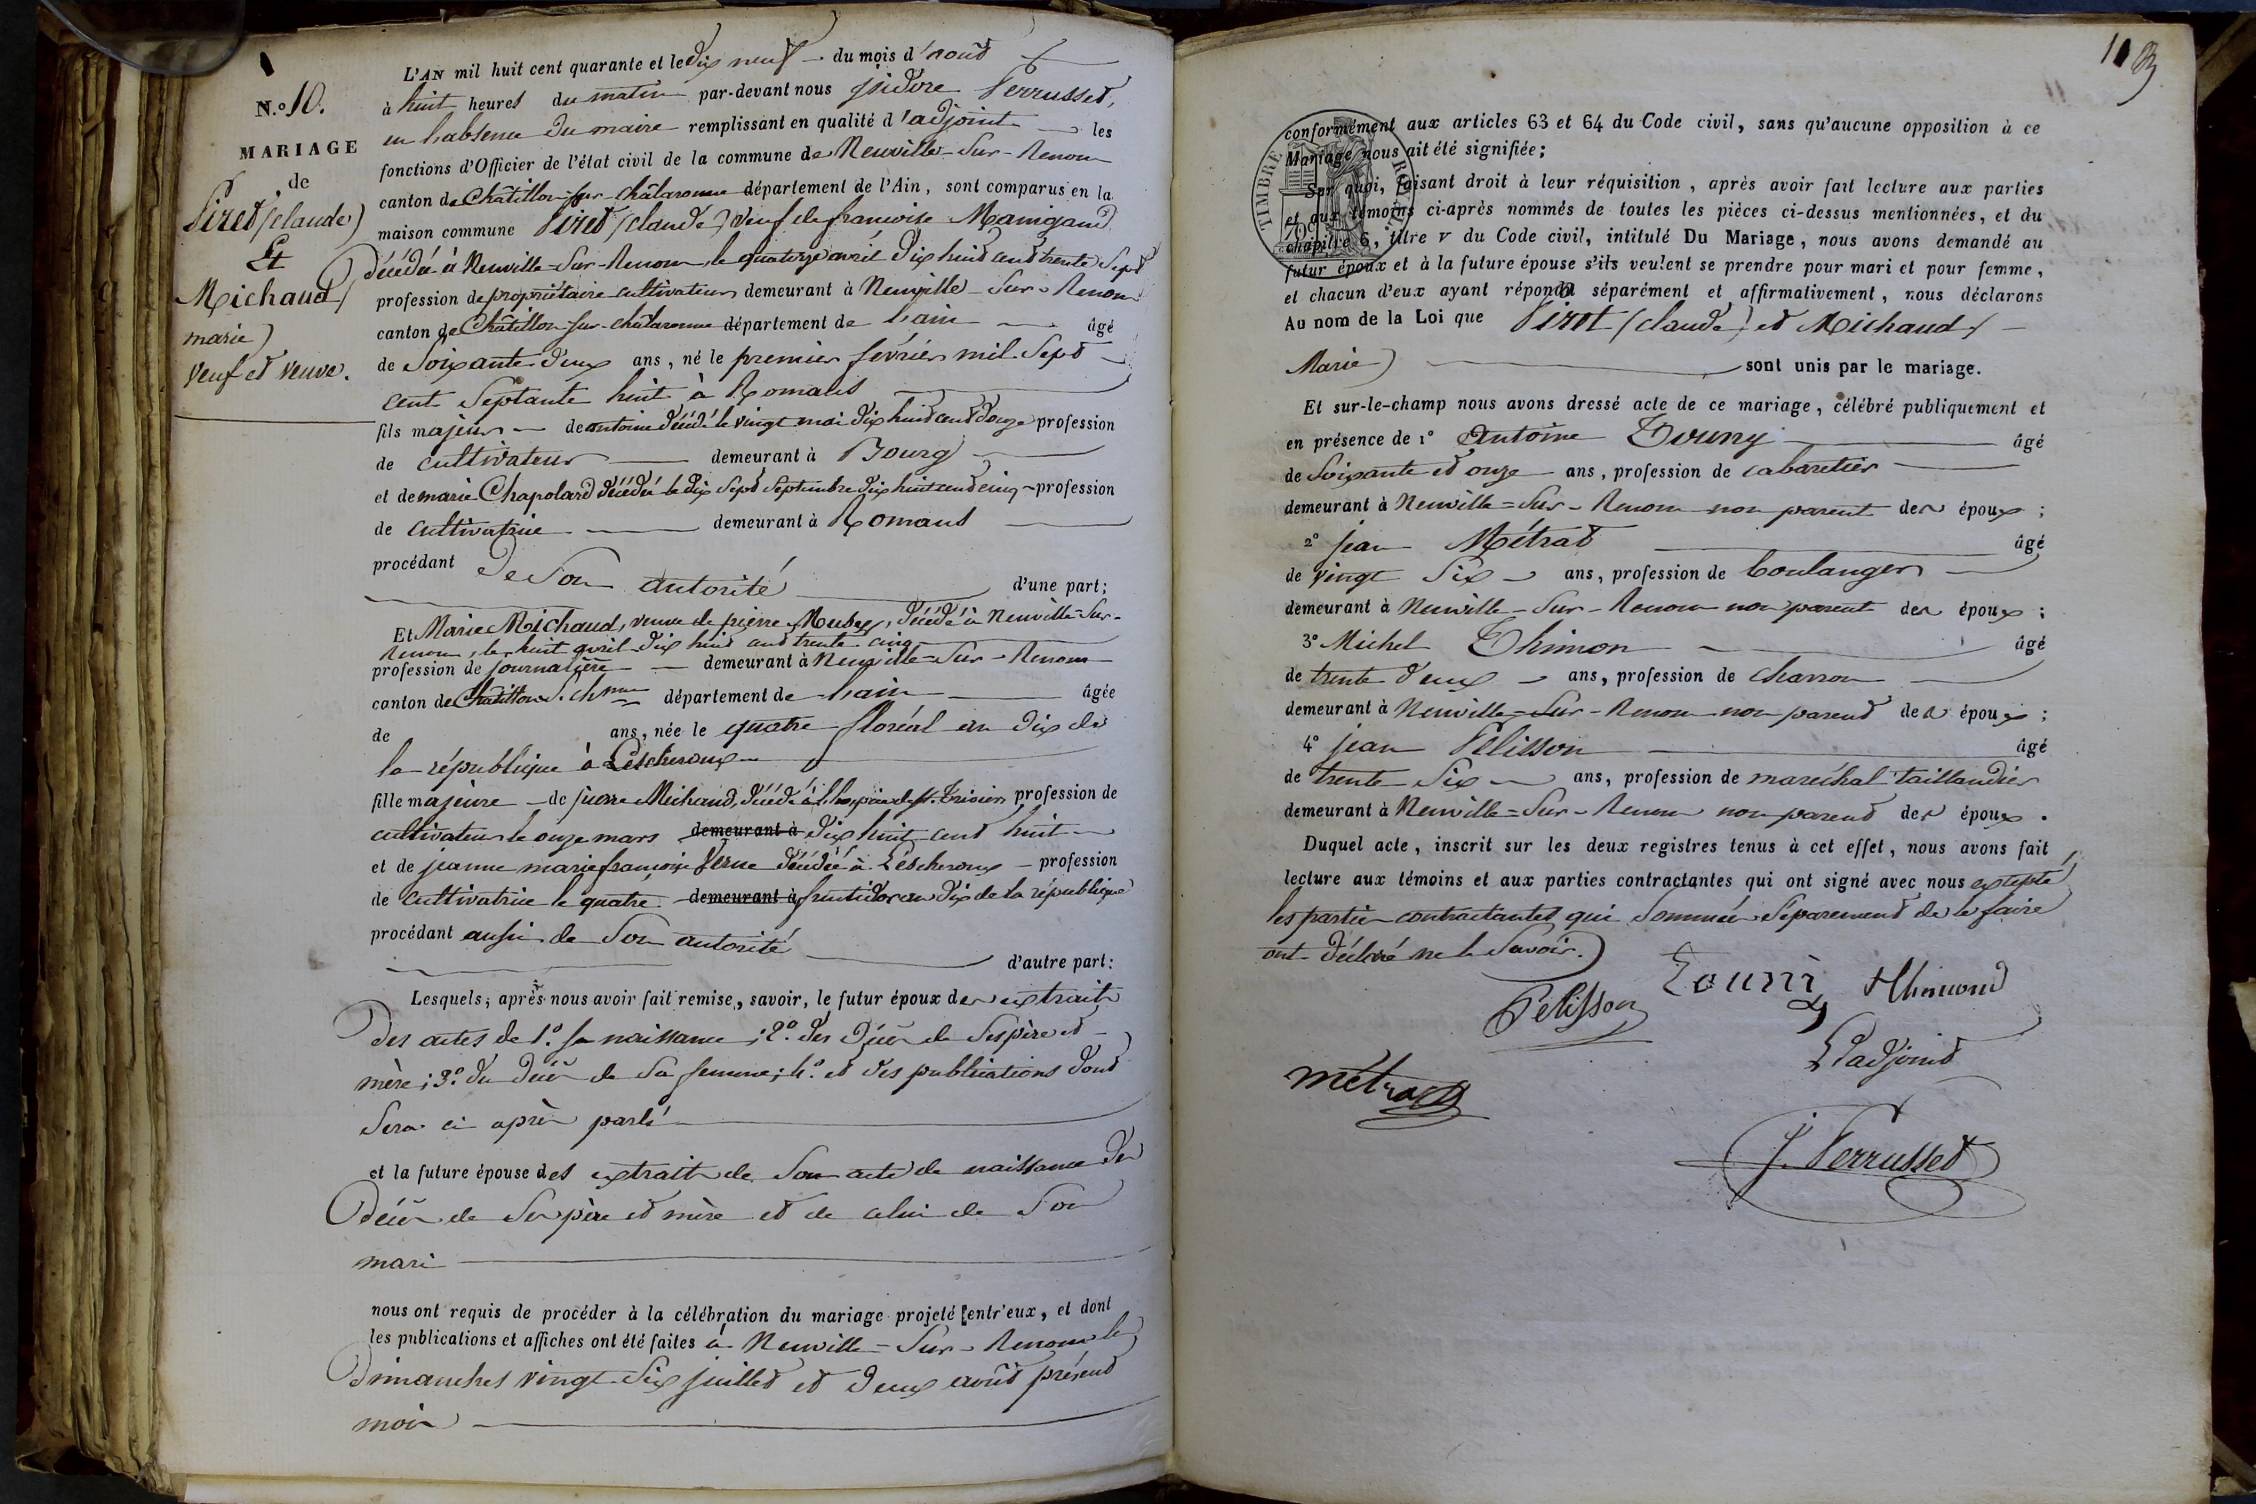 N.° 10.
MARIAGE
de
Piret (claude)
Et
Michaud (
marie)
veuf et veuve.
L'AN mil huit cent quarante et le dix neuf du mois d'août
à huit heures du matin par-devant nous isidore Ferrusset,
en habsence du maire remplissant en qualité d'adjoint les
fonctions d'Officier de l'état civil de la commune de Neuville-Sur-Renom
canton de Châtillon-sur-chalaronne département de l'Ain, sont comparus en la
maison commune Piret (claude) veuf de francoise Manigand
décédée à Neuville-Sur-Renom, le quatorze avril dix huit cent trente Sept
profession de propriétaire cultivateur demeurant à Neuville-Sur-Renom
canton de Châtillon-sur-chalaronne département de lain âgé
de Soixante deux ans, né le premier février mil Sept
cent Septante huit à Romans
fils majeur de antoine décédé le vingt mai dix huit cent douze profession
de cultivateur demeurant à Bourg
et de marie Chapolard décédée le dix Sept Septembre dix huit cent cinq profession
de cultivatrice demeurant à Romans
procédant de Son autorité d'une part;
Et Marie Michaud, veuve de pierre Musy, décédé à Neuville-Sur-
Renom, le huit avril dix huit cent trente cinq
profession de journalière demeurant à Neuville-Sur-Renom
canton de Châtillon S. Chnne département de lain âgée
de ans, née le quatre floréal an dix de
la république à Lescheroux
fille majeure de pierre Michaud, décédé à l'hospice de St. Trivier profession de
cultivateur le onze mars demeurant à dix huit cent huit
et de jeanne marie françoise Verne décédée à Lescheroux profession
de cultivatrice le quatre demeurant à fructidor an dix de la république
procédant aussi de Son autorité
d'autre part:
Lesquels, après nous avoir fait remise, savoir, le futur époux des extraits
Des actes de 1.° sa naissance; 2.° des Décès de Ses père et
mère; 3.° du Décès de Sa femme; 4.° et des publications dont
Sera ci après parlé
et la future épouse des extraits de Son acte de naissance du
Décès de Ses père et mère et de celui de Son
mari
nous ont requis de procéder à la célébration du mariage projeté entr'eux, et dont
les publications et affiches ont été faites à Neuville-Sur-Renom les
Dimanches vingt Six juillet et deux août présent
mois
TIMBRE ROYAL
70c
conformément aux articles 63 et 64 du Code civil, sans qu'aucune opposition à ce
Mariage nous ait été signifiée;
Sur quoi, faisant droit à leur réquisition, après avoir fait lecture aux parties
et aux témoins ci-après nommés de toutes les pièces ci-dessus mentionnées, et du
chapitre 6, titre v du Code civil, intitulé Du Mariage, nous avons demandé au
futur époux et à la future épouse s'ils veulent se prendre pour mari et pour femme,
et chacun d'eux ayant répondu séparément et affirmativement, nous déclarons
Au nom de la Loi que Pirot (claude) et Michaud (
Marie) sont unis par le mariage.
Et sur-le-champ nous avons dressé acte de ce mariage, célébré publiquement et
en présence de 1° Antoine Touny âgé
de Soixante et onze ans, profession de cabaretier
demeurant à Neuville-Sur-Renom non parent des époux;
2° jean Métrat âgé
de vingt Six ans, profession de boulanger
demeurant à Neuville-Sur-Renom non parent des époux;
3° Michel Thimon âgé
de trente deux ans, profession de charron
demeurant à Neuville-Sur-Renom non parent des époux;
4° jean Pelisson âgé
de trente Six ans, profession de maréchal taillandier
demeurant à Neuville-Sur-Renom non parent des époux.
Duquel acte, inscrit sur les deux registres tenus à cet effet, nous avons fait
lecture aux témoins et aux parties contractantes qui ont signé avec nous excepté
les parties contractantes qui Sommées Séparement de le faire
ont déclaré ne le Savoir.
Pelisson Touni thimond
L'adjoint
métrat
J. Ferrusset